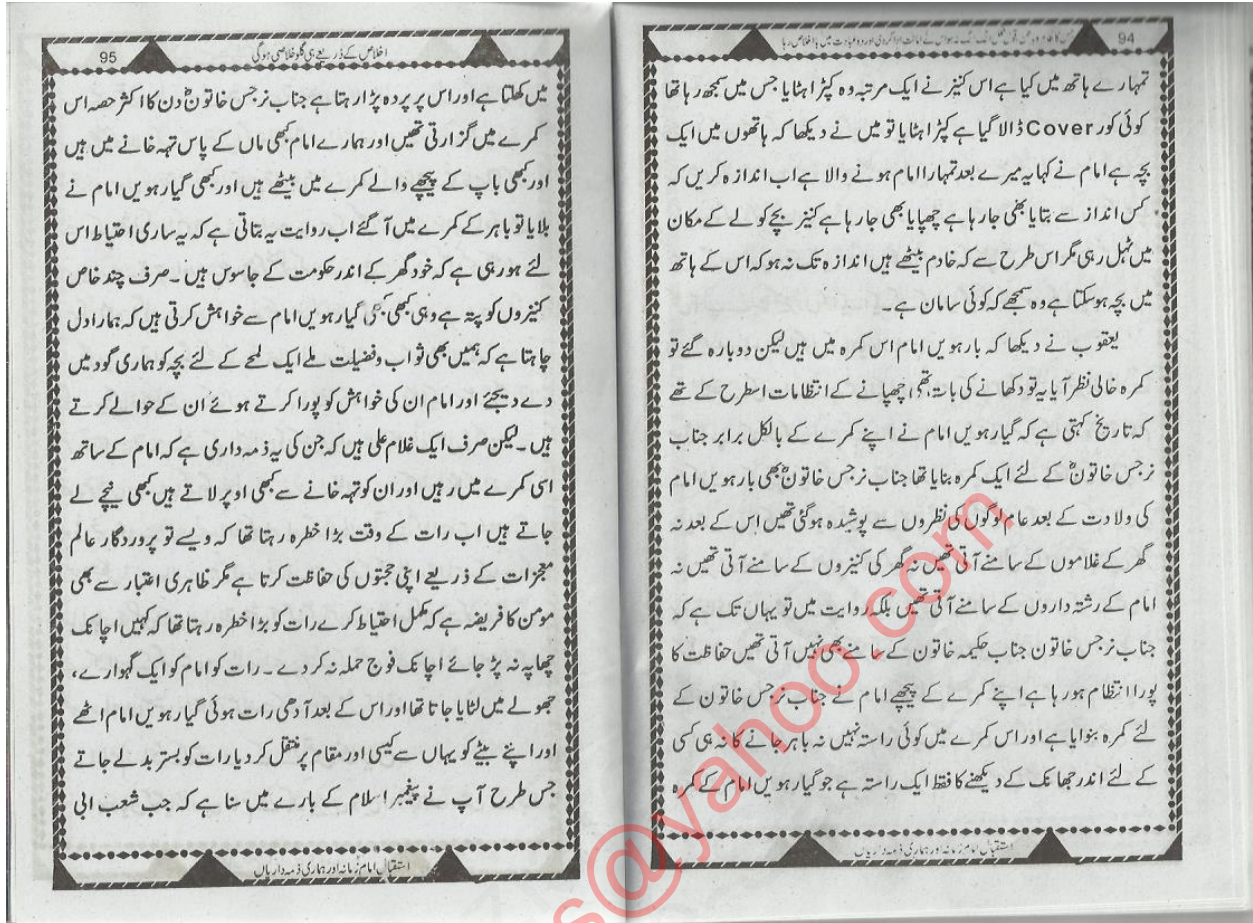 94
تمہارے ہاتھ میں کیا ہے اس کنیز نے ایک مرتبہ وہ کپڑا ہٹایا جس میں سمجھ رہا تھا
کوئی کور Cover ڈالا گیا ہے کپڑا ہٹایا تو میں نے دیکھا کہ ہاتھوں میں ایک
بچہ ہے امام نے کہا یہ میرے بعد تمہارا امام ہونے والا ہے اب اندازہ کریں کہ
کس انداز سے بتایا بھی جا رہا ہے چھپایا بھی جا رہا ہے کنیز بچے کو لے کے مکان
میں ٹہل رہی مگر اس طرح سے کہ خادم بیٹھے ہیں اندازہ تک نہ ہو کہ اس کے ہاتھ
میں بچہ ہو سکتا ہے وہ سمجھے کہ کوئی سامان ہے۔
یعقوب نے دیکھا کہ بارہویں امام اس کمرہ میں ہیں لیکن دوبارہ گئے تو
کمرہ خالی نظر آیا یہ تو دکھانے کی بات تھی اچھپانے کے انتظامات اسطرح کے تھے
کہ تاریخ کہتی ہے کہ گیارہویں امام نے اپنے کمرے کے بالکل برابر جناب
نرجس خاتونؑ کے لئے ایک کمرہ بنایا تھا جناب نرجس خاتونؑ بھی بارہویں امام
کی ولادت کے بعد عام لوگوں کی نظروں سے پوشیدہ ہوگئی تھیں اس کے بعد نہ
گھر کے غلاموں کے سامنے آتی تھیں نہ گھر کی کنیزوں کے سامنے آتی تھیں نہ
امام کے رشتہ داروں کے سامنے آتی تھیں بلکہ روایت میں تو یہاں تک ہے کہ
جناب نرجس خاتون جناب حکیمہ خاتون کے سامنے بھی نہیں آتی تھیں حفاظت کا
پورا انتظام ہو رہا ہے اپنے کمرے کے پیچھے امام نے جناب نرجس خاتون کے
لئے کمرہ بنوایا ہے اور اس کمرے میں کوئی راستہ نہیں نہ باہر جانے کا نہ ہی کسی
کے لئے اندر جھانک کے دیکھنے کا فقط ایک راستہ ہے جو گیارہویں امام کے کمرہ
استقبال امام زمانہ اور ہماری ذمہ داریاں
اخلاص کے ذریعے ہی گلو خلاصی ہوگی
95
میں کھلتا ہے اور اس پر پردہ پڑا رہتا ہے جناب نرجس خاتونؑ دن کا اکثر حصہ اس
کمرے میں گزارتی تھیں اور ہمارے امام کبھی ماں کے پاس تہہ خانے میں ہیں
اور کبھی باپ کے پیچھے والے کمرے میں بیٹھے ہیں اور کبھی گیارہویں امام نے
بلایا تو باہر کے کمرے میں آگئے اب روایت یہ بتاتی ہے کہ یہ ساری احتیاط اس
لئے ہو رہی ہے کہ خود گھر کے اندر حکومت کے جاسوس ہیں۔ صرف چند خاص
کنیزوں کو پتہ ہے وہی کبھی کبھی گیارہویں امام سے خواہش کرتی ہیں کہ ہمارا دل
چاہتا ہے کہ ہمیں بھی ثواب و فضیلت ملے ایک لمحے کے لئے بچہ کو ہماری گود میں
دے دیجئے اور امام ان کی خواہش کو پورا کرتے ہوئے ان کے حوالے کرتے
ہیں۔ لیکن صرف ایک غلام علی ہیں کہ جن کی یہ ذمہ داری ہے کہ امام کے ساتھ
اسی کمرے میں رہیں اور ان کو تہہ خانے سے کبھی اوپر لاتے ہیں کبھی نیچے لے
جاتے ہیں اب رات کے وقت بڑا خطرہ رہتا تھا کہ ویسے تو پروردگار عالم
معجزات کے ذریعے اپنی حجتوں کی حفاظت کرتا ہے مگر ظاہری اعتبار سے بھی
مومن کا فریضہ ہے کہ مکمل احتیاط کرے رات کو بڑا خطرہ رہتا تھا کہ کہیں اچانک
چھاپہ نہ پڑ جائے اچانک فوج حملہ نہ کردے۔ رات کو امام کو ایک گہوارے،
جھولے میں لٹایا جاتا تھا اور اس کے بعد آدھی رات ہوئی گیارہویں امام اٹھے
اور اپنے بیٹے کو یہاں سے کیسی اور مقام پر منتقل کر دیا رات کو بستر بدلے جاتے
جس طرح آپ نے پیغمبر اسلام کے بارے میں سنا ہے کہ جب شعب ابی
استقبال امام زمانہ اور ہماری ذمہ داریاں
s@yahoo.com